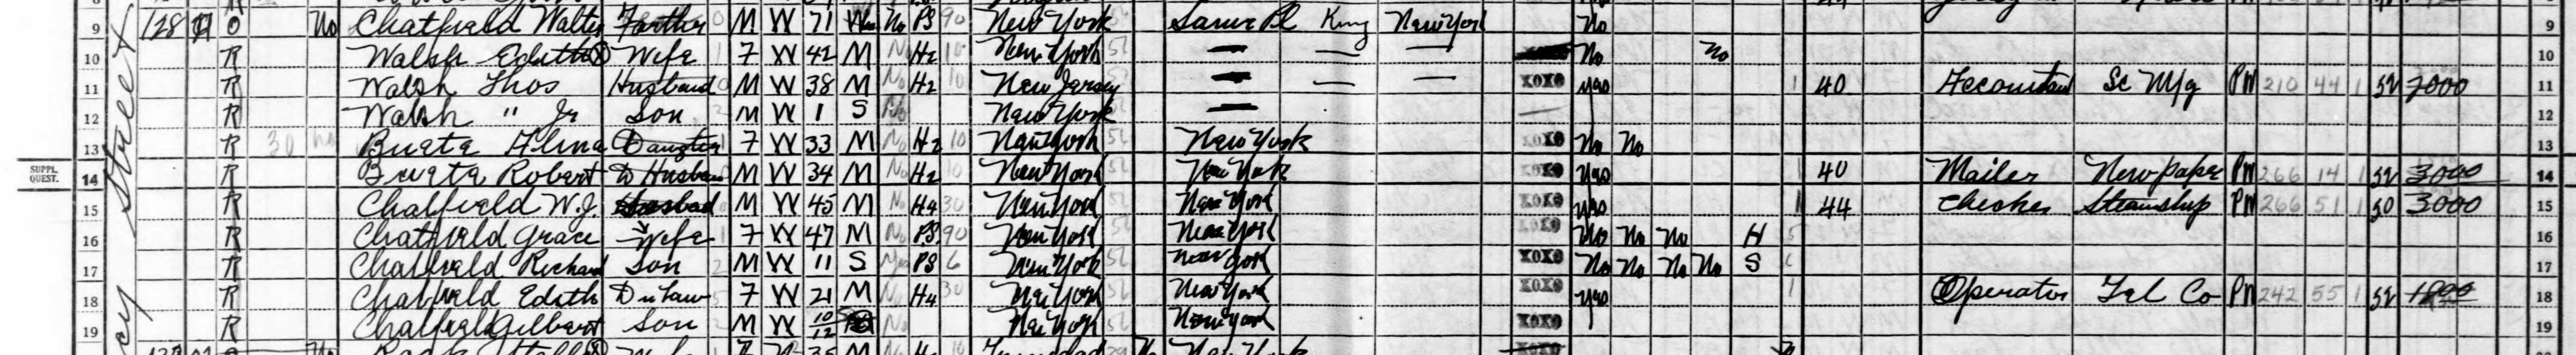 9 128 O No Chatfield Walter Farther 0 M W 71 No PS 90 New York Same Pl King New York No 9
10 R Walsh Edith Wife 1 F W 42 M No H2 10 New York 56 — — — No No 10
11 R Walsh Thos Husband 0 M W 38 M No H2 10 New Jersey — — — XOXO yes 1 40 Accountant Sc Mfg PW 210 44 1 52 2000 11
12 R Walsh " Jr Son 2 M W 1 S No New York — 12
13 R Daugter 1 F W 33 M No H2 10 New York 56 New York XOXO No No 13
SUPPL. QUEST. 14 R Robert Husban M W 34 M No H2 10 New York 56 New York XOXO yes 1 40 Mailer New paper PW 266 14 1 52 3000 14
15 R Chatfield W.J. M W 45 M No H4 30 New York 56 New York XOXO yes 1 44 Checker Steamship PW 266 51 1 50 3000 15
16 R Chatfield Grace Wife 1 F W 47 M No PS 90 New York 56 New York XOXO No No No H 5 16
17 R Chatfield Richard Son 2 M W 11 S PS 6 New York 56 New York XOXO No No No No S 6 17
18 R Chatfield Edith F W 21 M No H4 30 New York 56 New York XOXO yes 1 Operator Tel Co PW 242 55 1 52 18
19 R Chatfield Gilbert Son M W 10/12 No New York 56 New York XOXO 19